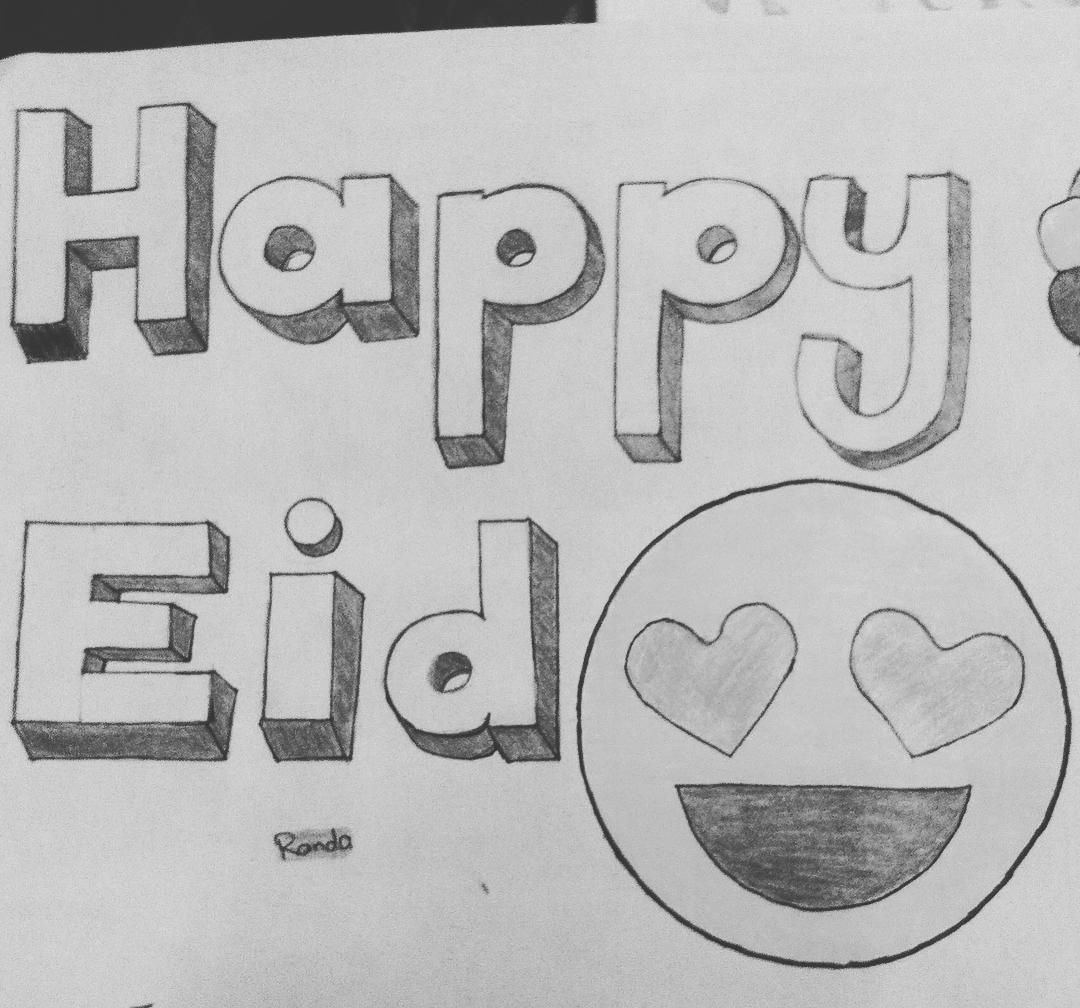 Happy
Eid
Randa